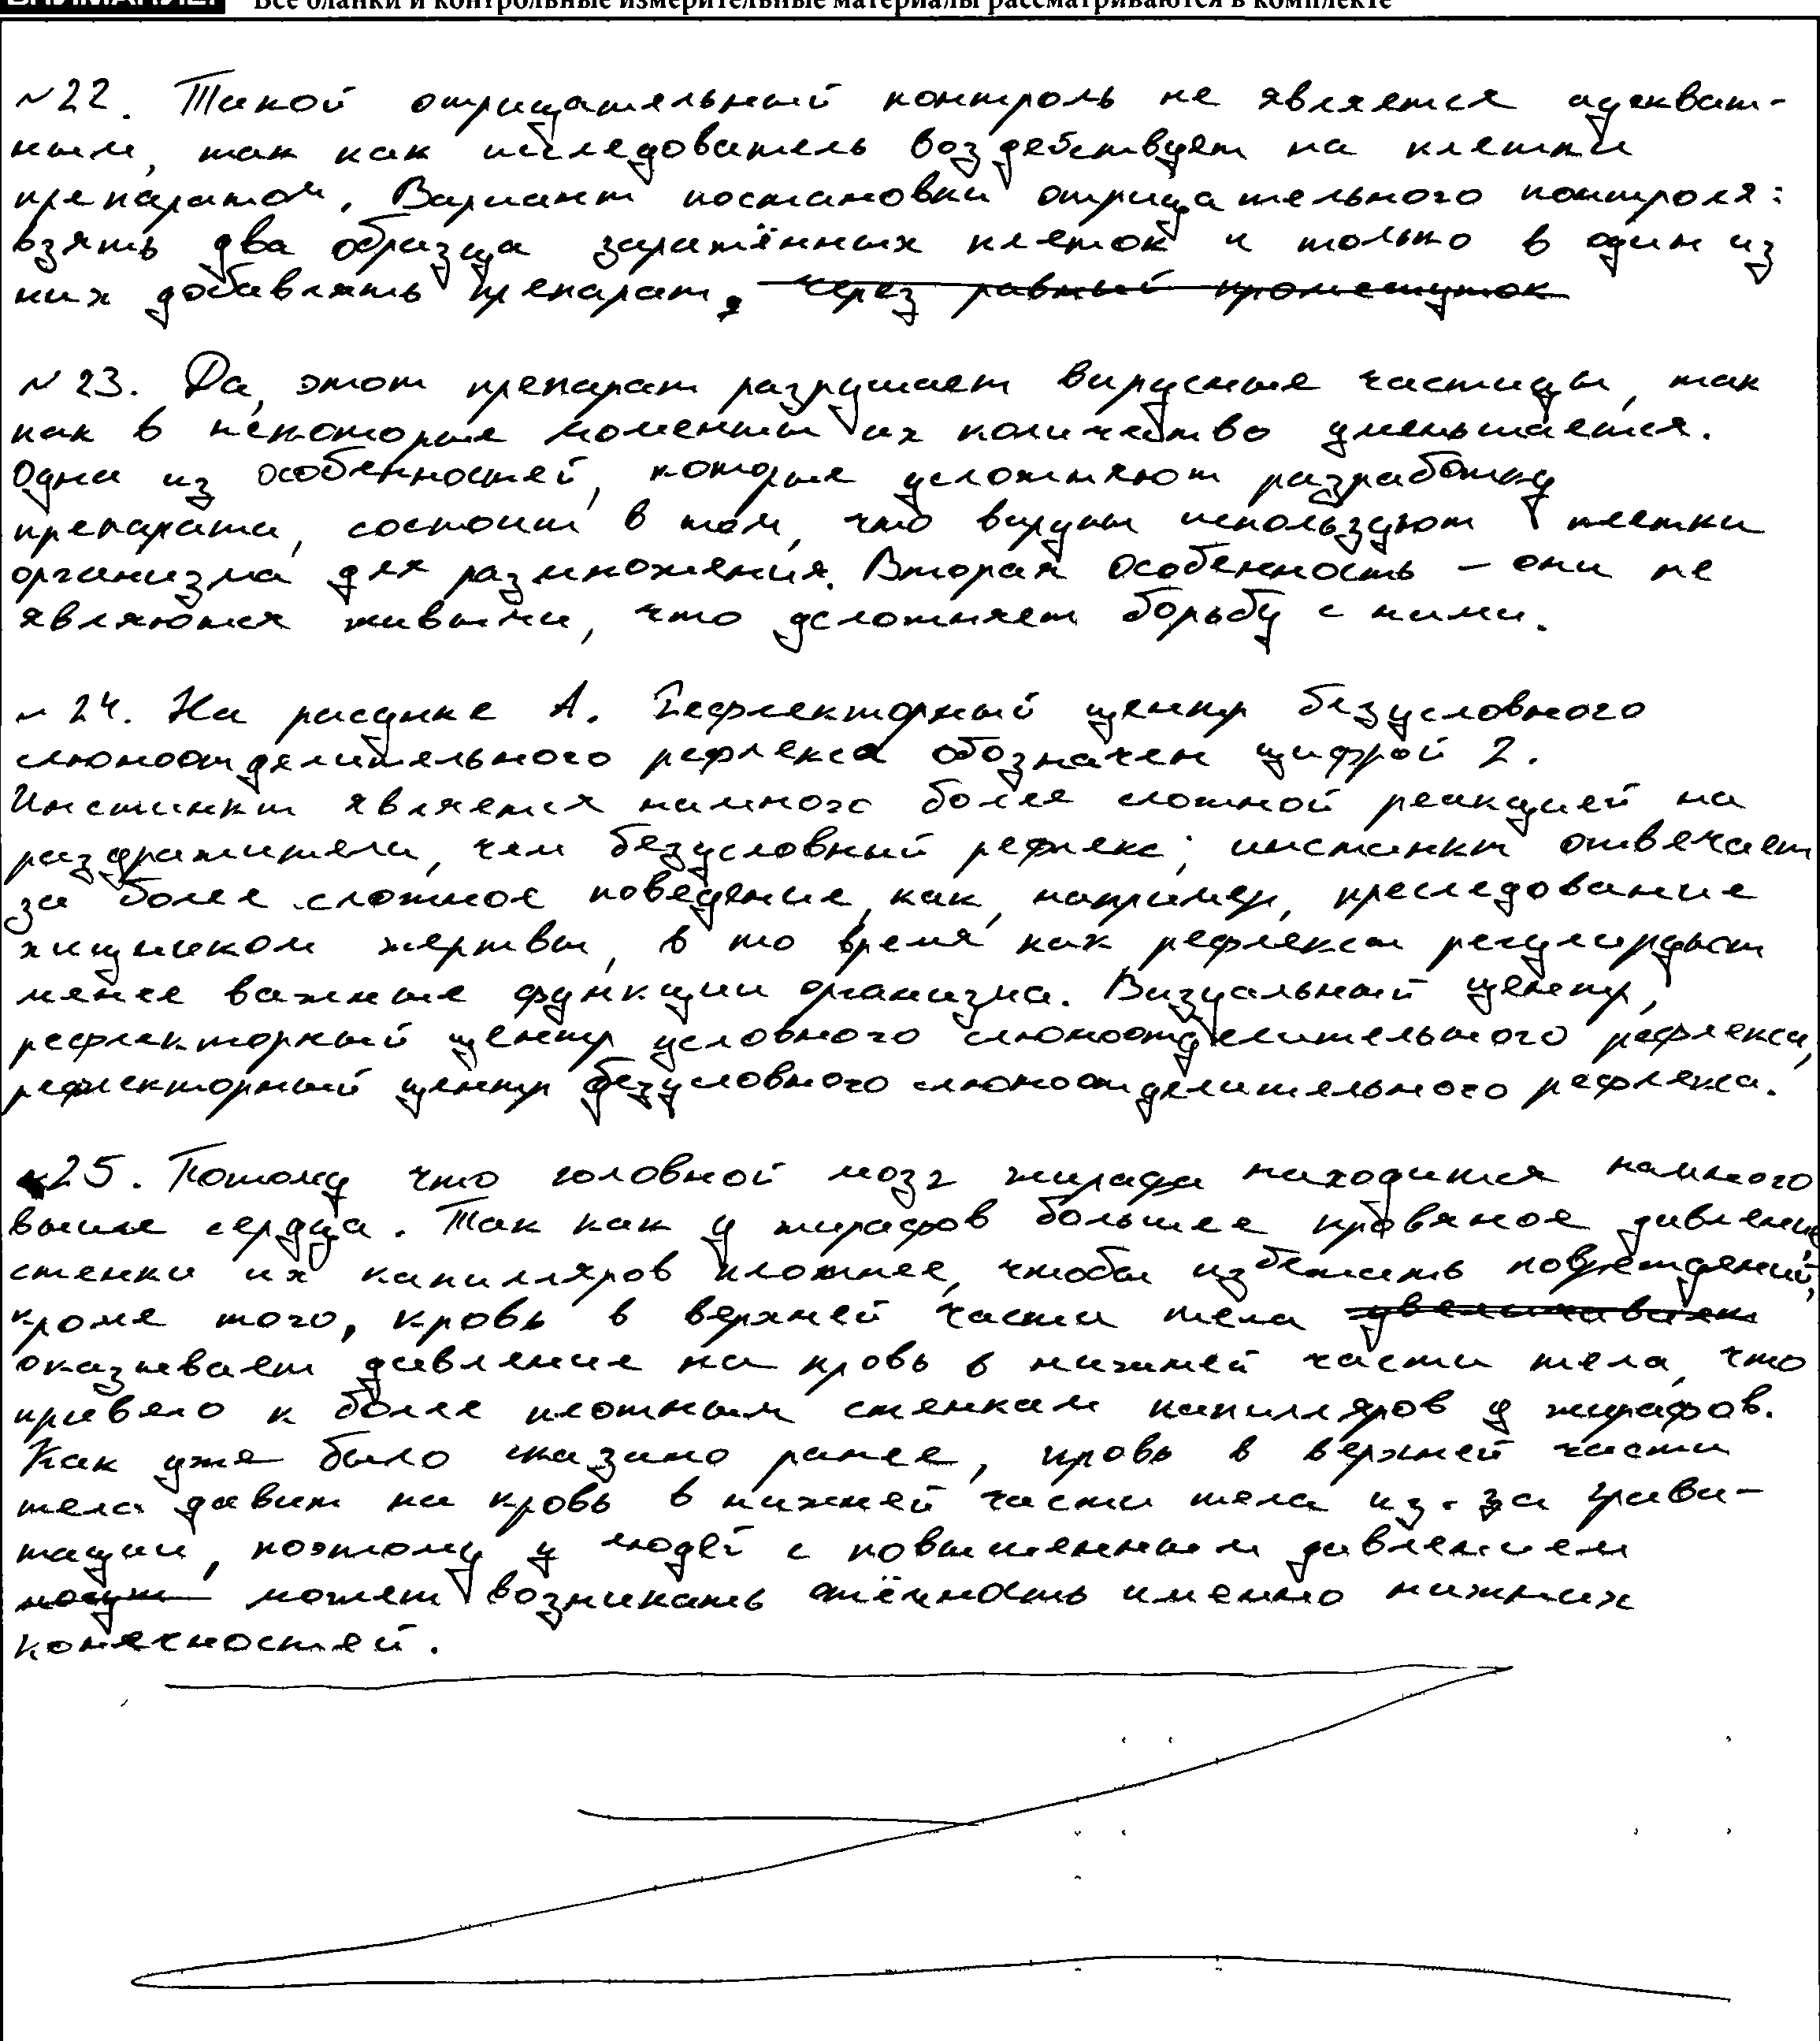 Все бланки и контрольные измерительные материалы рассматриваются в комплекте
№22. Такой отрицательный контроль не является адекват-
ным, так как исследователь воздействует на клетки
препаратом. Вариант постановки отрицательного контроля:
взять два образца заражённых клеток и только в один из
них добавлять препарат. через равный промежуток
№23. Да, этот препарат разрушает вирусные частицы, так
как в некоторые моменты их количество уменьшается.
Одна из особенностей, которые усложняют разработку
препарата, состоит в том, что вирусы используют клетки
организма для размножения. Вторая особенность – они не
являются живыми, что усложняет борьбу с ними.
№24. На рисунке А. Рефлекторный центр безусловного
слюноотделительного рефлекса обозначен цифрой 2.
Инстинкт является намного более сложной реакцией на
раздражители, чем безусловный рефлекс; инстинкт отвечает
за более сложное поведение, как, например, преследование
хищником жертвы, в то время как рефлексы регулируют
менее важные функции организма. Визуальный центр,
рефлекторный центр условного слюноотделительного рефлекса,
рефлекторный центр безусловного слюноотделительного рефлекса.
№25. Потому что головной мозг жирафа находится намного
выше сердца. Так как у жирафов большее кровяное давление
стенки их капилляров плотнее, чтобы избежать повреждений,
кроме того, кровь в верхней части тела
оказывает давление на кровь в нижней части тела, что
привело к более плотным стенкам капилляров у жирафов.
Как уже было сказано ранее, кровь в верхней части
тела давит на кровь в нижней части тела из-за грави-
тации, поэтому у людей с повышенным давлением
могут может возникать отёчность именно нижних
конечностей.